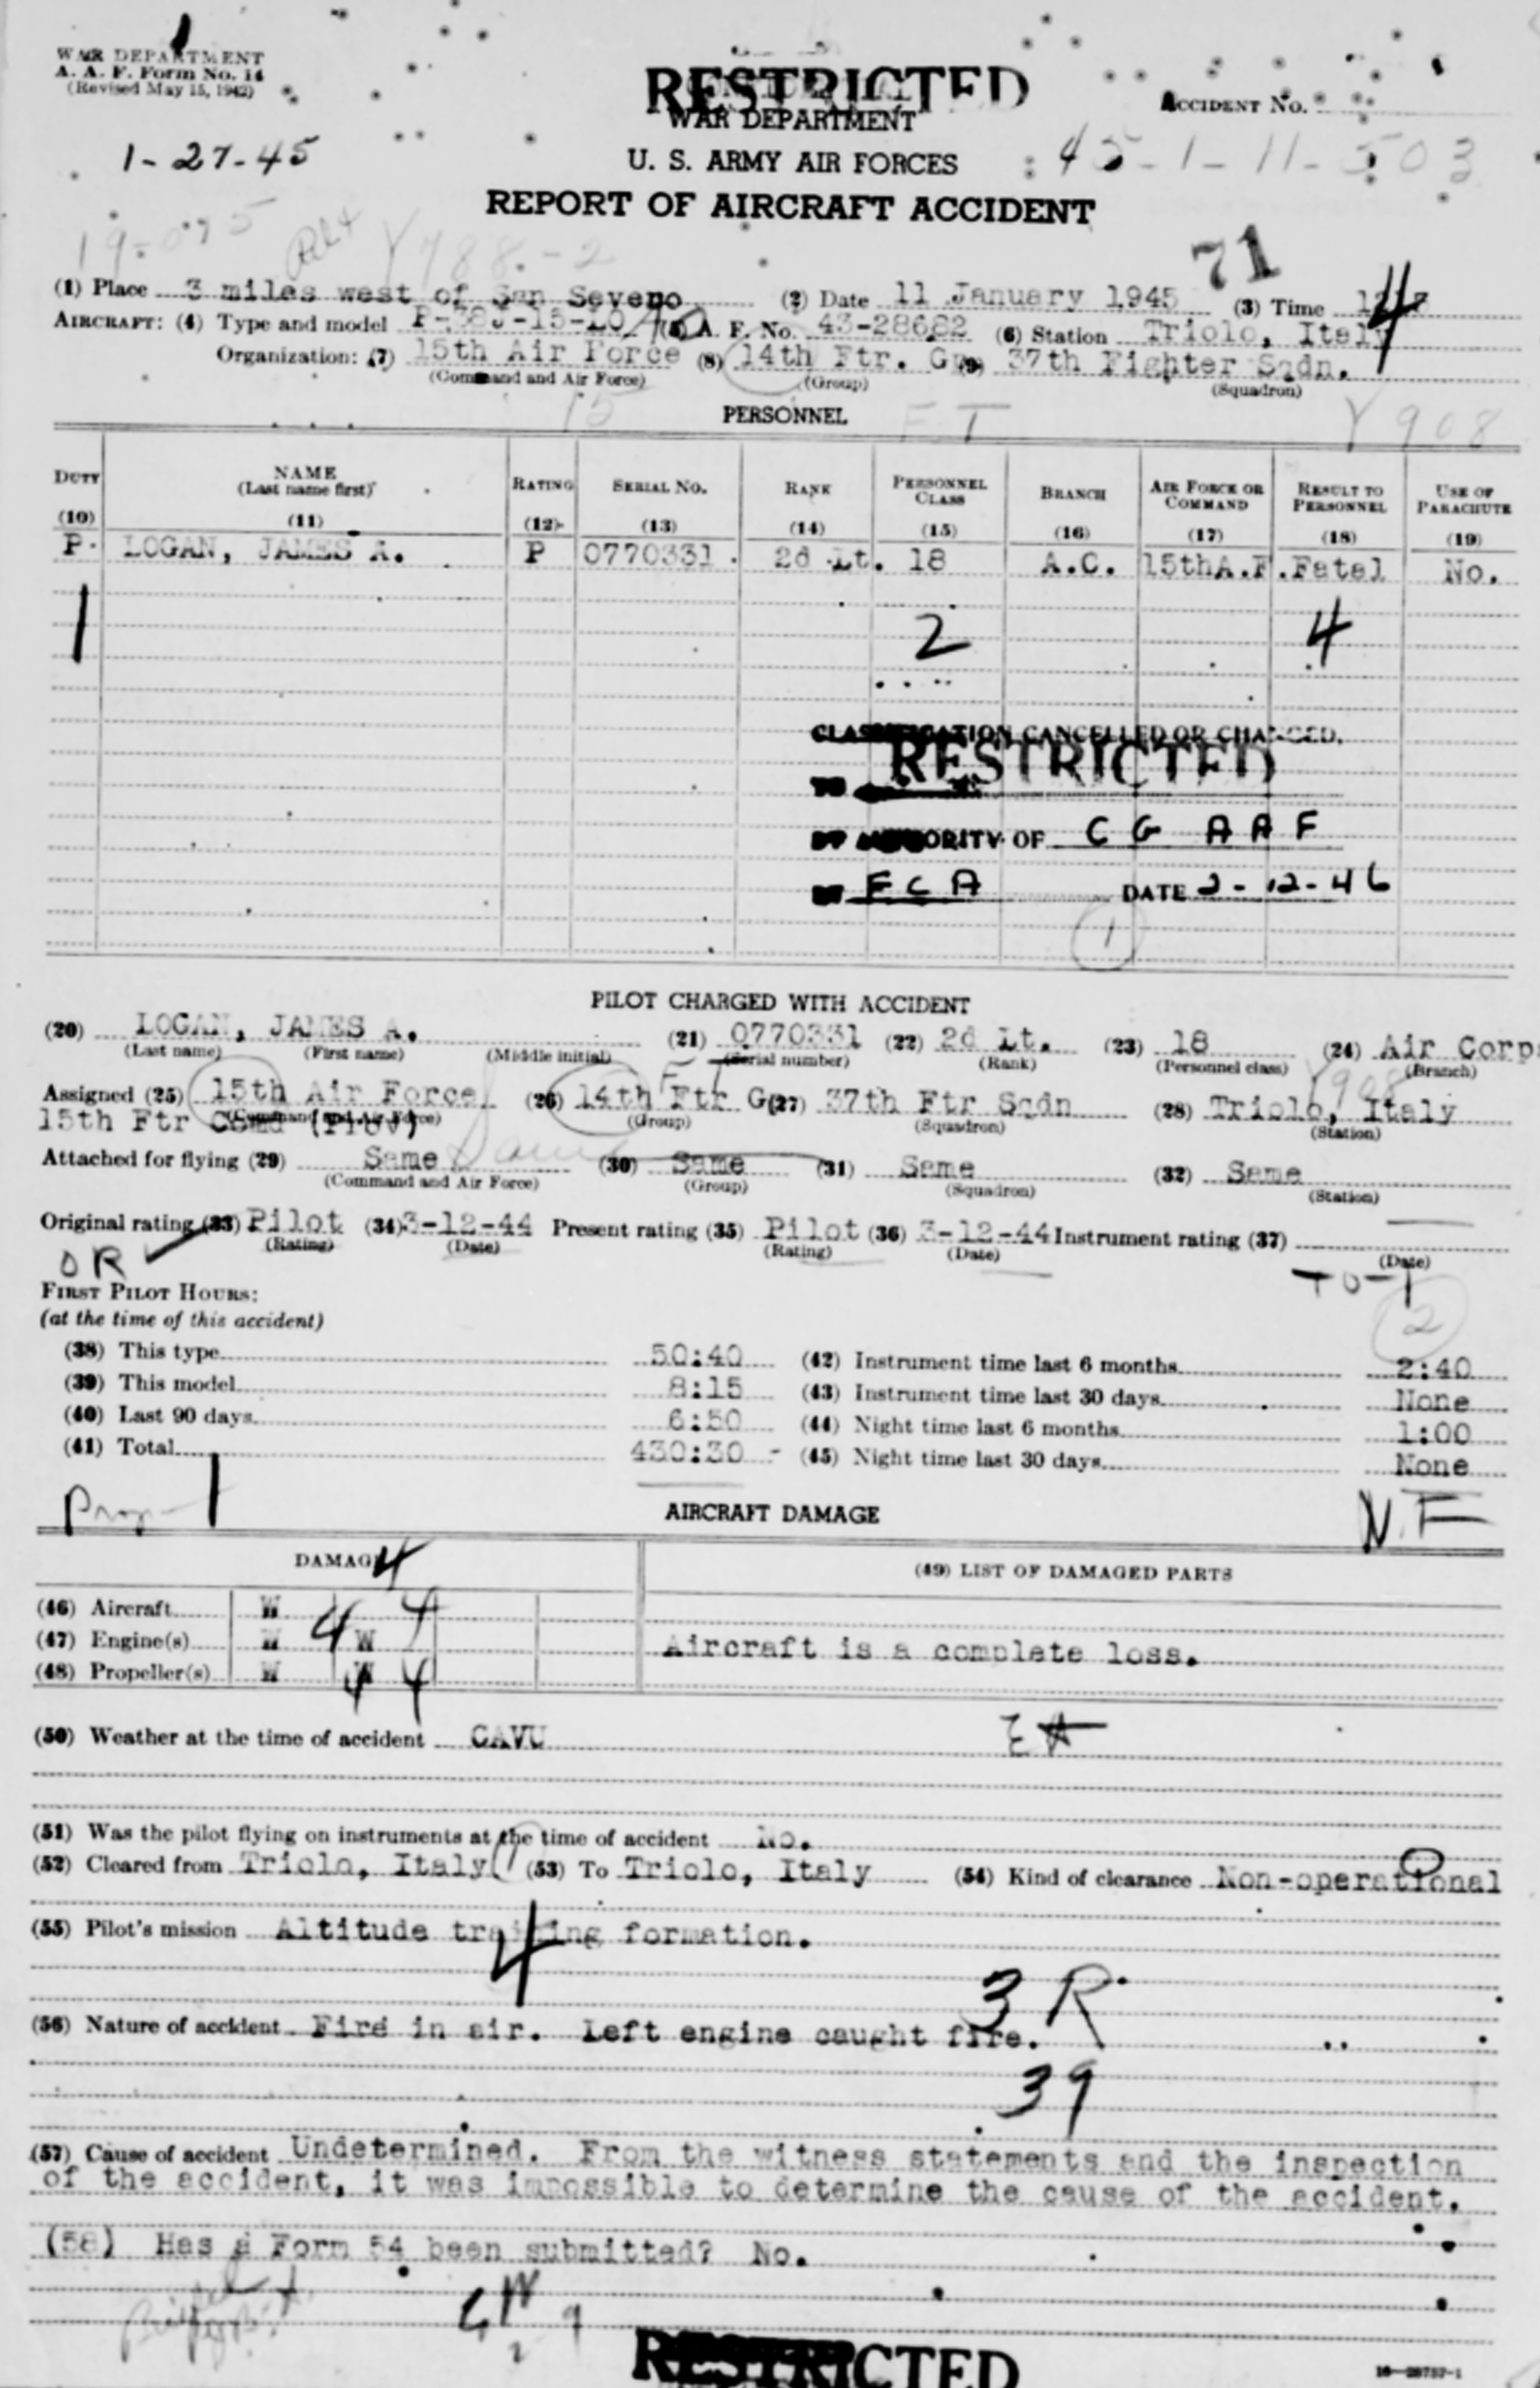 WAR DEPARTMENT
A. A. F. Form No. 14
(Revised May 15, 1942)
RESTRICTED
WAR DEPARTMENT
ACCIDENT No.
1-27-45
U. S. ARMY AIR FORCES
45-1-11-503
REPORT OF AIRCRAFT ACCIDENT
71
(1) Place 3 miles west of San Severo (2) Date 11 January 1945 (3) Time
AIRCRAFT: (4) Type and model P-38J-15-LO A. F. No. 43-28682 (6) Station Triolo, Italy
4
Organization: (7) 15th Air Force (8) 14th Ftr. 37th Fighter Sqdn.
(Command and Air Force) (Group) (Squadron)
15
PERSONNEL
F T
Y908
DUTY NAME RATING SERIAL NO. RANK PERSONNEL CLASS BRANCH AIR FORCE OR COMMAND RESULT TO PERSONNEL USE OF PARACHUTE
(Last name first)
(10) (11) (12) (13) (14) (15) (16) (17) (18) (19)
P LOGAN, JAMES A. P 0770331 2d Lt. 18 A.C. 15thA.F. Fatal No.
1 2 4
CLASSIFICATION CANCELLED OR CHANGED
RESTRICTED
TO
BY AUTHORITY OF C G A A F
BY F C A DATE 2-12-46
1
PILOT CHARGED WITH ACCIDENT
(20) LOGAN, JAMES A. (21) 0770331 (22) 2d Lt. (23) 18 (24) Air Corp
(Last name) (First name) (Middle initial) (Serial number) (Rank) (Personnel class) (Branch)
Assigned (25) 15th Air Force (26) 14th Ftr G (27) 37th Ftr Sqdn (28) Triolo, Italy
15th Ftr Comd (Prov) (Command and Air Force) (Group) (Squadron) (Station)
Attached for flying (29) Same (30) Same (31) Same (32) Same
(Command and Air Force) (Group) (Squadron) (Station)
Original rating (33) Pilot (34) 3-12-44 Present rating (35) Pilot (36) 3-12-44 Instrument rating (37)
(Rating) (Date) (Rating) (Date) (Date)
OR
FIRST PILOT HOURS:
(at the time of this accident)
2
(38) This type 50:40 (42) Instrument time last 6 months 2:40
(39) This model 8:15 (43) Instrument time last 30 days None
(40) Last 90 days 6:50 (44) Night time last 6 months 1:00
(41) Total 430:30 (45) Night time last 30 days None
Prop 1
AIRCRAFT DAMAGE
N.F
DAMAGE 4
(49) LIST OF DAMAGED PARTS
(46) Aircraft W
(47) Engine(s) W 4 W
Aircraft is a complete loss.
(48) Propeller(s) W W 4
(50) Weather at the time of accident CAVU
(51) Was the pilot flying on instruments at the time of accident No.
(52) Cleared from Triolo, Italy (53) To Triolo, Italy (54) Kind of clearance Non-operational
(55) Pilot's mission Altitude training formation.
4
3 R
(56) Nature of accident Fire in air. Left engine caught fire.
39
(57) Cause of accident Undetermined. From the witness statements and the inspection
of the accident, it was impossible to determine the cause of the accident.
(58) Has a Form 54 been submitted? No.
RESTRICTED
16-28757-1